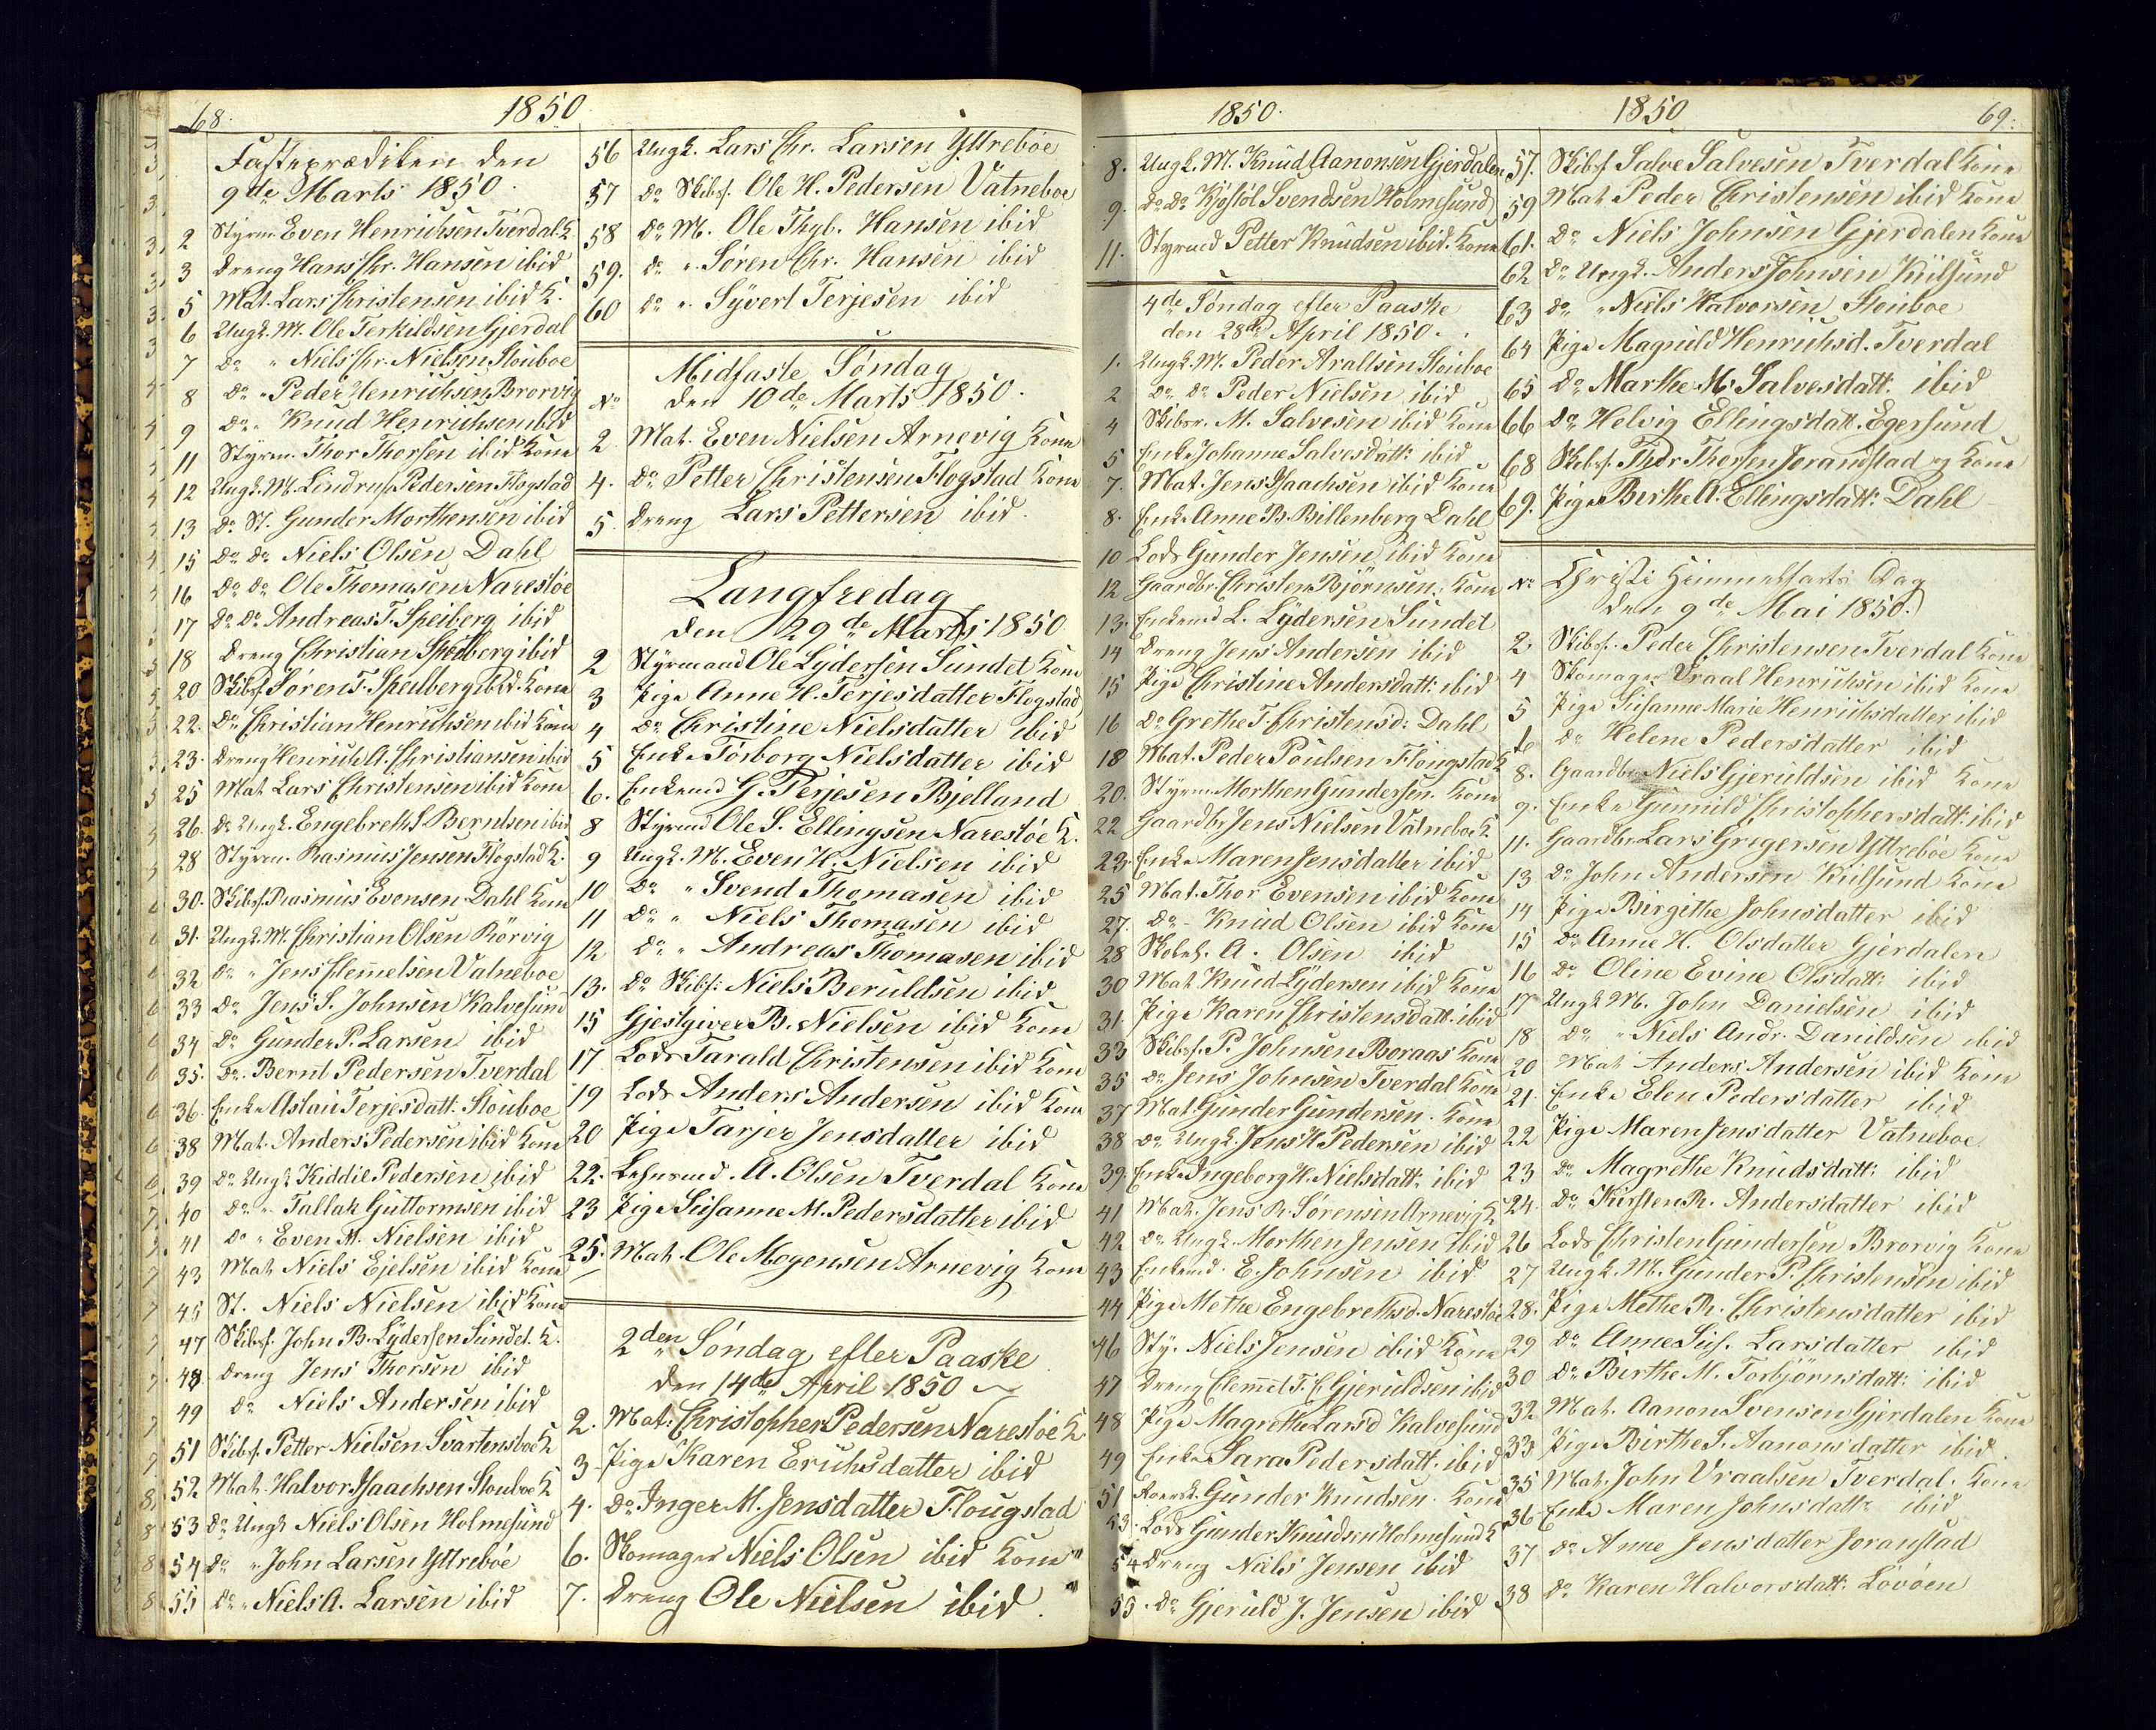 68.
1850
Fasteprædiken den
9de Marts 1850.
2 Styrm. Even Henrichsen Tverdal K.
3 Dreng Hans Chr. Hansen ibid
5 Mat. Lars Christensen ibid K.
6 Ungk. M. Ole Terkildsen Gjerdal
7 Do " Niels Chr. Nielsen Stouboe
8 Do " Peder Henrichsen Brorvig
9 Do " Knud Henrichsen ibid
11 Styrm. Thor Thorsen ibid Kone
12 Ungk. M. Lendrup Pedersen Flogstad
13 Do St. Gunder Morthensen ibid
15 Do Do Niels Olsen Dahl
16 Do Do Ole Thomasen Narestöe
17 Do Do Andreas T. Speiberg ibid
18 Dreng Christian Speiberg ibid
20 Skibsf. Søren T. Speilberg ibid. Kone
22. Do Christian Henrichsen ibid Kone
23. Dreng Henrich A. Christiansen ibid
25 Mat Lars Christensen ibid Kone
26. Do Ungk. Engebreth S Berntsen ibid
28 Styrm. Rasmus Jensen Flogstad K.
30. Skibsf. Rasmus Evensen Dahl Kone
31. Ungk. M. Christian Olsen Rörvig
32 Do " Jens Clemmetsen Vatneboe
33 Do Jens S. Johnsen Kalvesund
34 Do Gunder P. Larsen ibid
35. Do. Bernt Pedersen Tverdal
36. Enke Aslau Terjesdatt. Stouboe
38 Mat. Anders Pedersen ibid Kone
39 Do Ungk Kiddil Pedersen ibid
40 Do " Tallak Guttormsen ibid
41 Do " Even M. Nielsen ibid
43 Mat Niels Ejelsen ibid Kone
45 St. Niels Nielsen ibid Kone
47 Skibsf. John B. Lydersen Sundet. K.
48 Dreng Jens Thorsen ibid
49 Do Niels Andersen ibid
51 Skibsf. Petter Nielsen Svartensboe K
52 Mat. Halvor Isaachsen Stouboe K
53 Do Ungk Niels Olsen Holmesund
54 Do " John Larsen Yttreböe
55 Do " Niels A. Larsen ibid
56 Ungk. Lars Chr. Larsen Yttreböe
57 Do Skibsf. Ole H. Pedersen Vatneboe
58 Do M. Ole Thgb. Hansen ibid
59. Do " Søren Chr. Hansen ibid
60 Do " Syvert Terjesen ibid
Midfaste Søndag
No den 10de Marts 1850.
2 Mat. Even Nielsen Arnevig Kone
4. Do Petter Christensen Flogstad Kone
5. Dreng Lars Pettersen ibid.
Langfredag
den 29de Marts 1850
2 Styrmand Ole Lydersen Sundet Kone
3 Pige Anne H. Terjesdatter Flogstad
4 Do Christine Nielsdatter ibid
5 Enke Torborg Nielsdatter ibid
6. Enkemd G. Terjesen Bjelland
8 Styrmd Ole S. Ellingsen Narestöe K.
9 Ungk. M. Even H. Nielsen ibid
10 Do " Svend Thomasen ibid
11 Do " Niels Thomasen ibid
12 Do " Andreas Thomasen ibid
13. Do Skibsf: Niels Beruldsen ibid
15 Gjestgiver B. Nielsen ibid Kone
17 Lods Tarald Christensen ibid Kone
19 Lods Anders Andersen ibid Kone
20 Pige Tarjer Jensdatter ibid
22. Lehnsmd. A. Olsen Tverdal Kone
23 Pige Susanne M. Pedersdatter ibid
25. Mat. Ole Mogensen Arnevig Kone
2den Søndag efter Paaske
den 14de April 1850
2. Mat: Christopher Pedersen Narestöe K.
3 Pige Karen Erichsdatter ibid
4. Do Inger M. Jensdatter Flougstad
6. Skomager Niels Olsen ibid Kone
7. Dreng Ole Nielsen ibid.
1850.
8. Ungk. M. Knud Aanonsen Gjerdalen
9. Do Do Kjöstöl Svendsen Holmesund
11. Styrmd Petter Knudsen ibid. Kone
4de Søndag efter Paaske
den 28de April 1850.
1. Ungk. M. Peder Araltsen Stouboe
2 Do Do Peder Nielsen ibid
4 Skibsr. M. Salvesen ibid Kone
5 Enke Johanne Salvesdatt: ibid
7. Mat. Jens Isaachsen ibid Kone
8. Enke Anne B. Billenberg Dahl
10 Lods Gunder Jensen ibid Kone
12 Gaardbr. Christen Björnsen. Kone
13. Enkemd L. Lydersen Sundet
14 Dreng Jens Andersen ibid
15 Pige Christine Andersdatt: ibid
16 Do Grethe T. Christensd: Dahl
18 Mat. Peder Poulsen Flougstad K
20. Styrm. Morthen Gundersen. Kone
22 Gaardbr Jens Nielsen Vatneboe K.
23. Enke Maren Jensdatter ibid
25 Mat. Thor Evensen ibid Kone
27. Do - Knud Olsen ibid Kone
28 Skoleh. A. Olsen ibid
30 Mat Knud Lydersen ibid Kone
31. Pige Karen Christensdatt. ibid
33 Skibsf. P. Johnsen Boraas Kone
35 Do Jens Johnsen Tverdal Kone
37 Mat. Gunder Gundersen. Kone
38 Do Ungk. Jens H Pedersen ibid
39. Enke Ingeborg H. Nielsdatt: ibid
41 Mat. Jens R. Sørensen Arnevig K
42 Do Ungk. Morthen Jensen ibid
43 Enkemd. E. Johnsen ibid
44 Pige Methe Engebrethsd. Narestöe
46 Sty. Niels Jensen ibid Kone
47 Dreng Clemet T. C Gjeruldsen ibid
48 Pige Magrethe Larsd Kalvesund
49 Enke Sara Pedersdatt. ibid
51 Gunder Knudsen. Kone
53. Lods Gunder Knudsen Holmesund K
54 Dreng Niels Jensen ibid
55. Do Gjeruld J. Jensen ibid
1850
69.
57. Skibsf. Salve Salvesen Tverdal Kone
59 Mat Peder Christensen ibid Kone
61. Do Niels Johnsen Gjerdalen Kone
62 Do Ungk. Anders Johnsen Kiilsund
63 Do " Niels Halvorsen Stouboe
64 Pige Magnild Henrichsd. Tverdal
65 Do Marthe M. Salvesdatt: ibid
66 Do Helvig Ellingsdatt. Egersund
68 Skibsf. Thor Thorsen Jorandstad og Kone
69. Pige Berthe A. Ellingsdatt: Dahl
No Christi Himmelfarts Dag
den 9de Mai 1850.
2. Skibsf. Peder Christensen Tverdal Kone
4 Skomager Vraal Henrichsen ibid Kone
5 Pige Susanne Marie Henrichsdatter ibid
6 Do Helene Pedersdatter ibid
8. Gaardbr Niels Gjeruldsen ibid Kone
9. Enke Gunnild Christophersdatt: ibid
11. Gaardbr. Lars Gregersen Yttreböe Kone
13 Do John Andersen Kiilsund Kone
14 Pige Birgithe Johnsdatter ibid
15 Do Anne H. Olsdatter Gjerdalen
16 Do Oline Evine Olsdatt: ibid
17 Ungk M. John Danielsen ibid
18 Do " Niels Andr. Danildsen ibid
20 Mat Anders Andersen ibid Kone
21. Enke Elen Pedersdatter ibid
22 Pige Maren Jensdatter Vatneboe
23 Do Magrethe Knudsdatt: ibid
24. Do Kirsten R. Andersdatter ibid
26 Lods Christen Gundersen Brorvig Kone
27 Ungk. M. Gunder P. Christensen ibid
28. Pige Methe R. Christensdatter ibid
29 Do Anne Sus. Larsdatter ibid
30 Do Berthe M. Torbjörnsdatt: ibid
32 Mat. Aanon Svensen Gjerdalen Kone
33 Pige Birthe S. Aanonsdatter ibid.
35 Mat. John Vraalsen Tverdal. Kone
36 Enke Maren Johnsdatt: ibid
37 Do Anne Jensdatter Joranstad
38 Do Karen Halvorsdatt: Lövöen